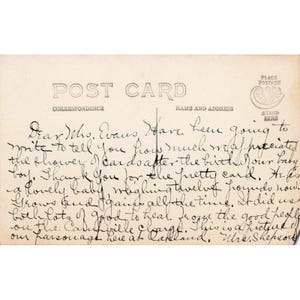 POST CARD
PLACE
POSTAGE
STAMP
HERE
CORRESPONDENCE
NAME AND ADDRESS
Dear Mrs. Evans, Have been going to
write to tell you how much we appreciated
the shower of cards after the birth of our baby
boy. Thank you for the pretty card. He is
a lovely baby weighing twelve pounds now
Grows and gains all the time. It did us
both lots of good to hear from the good people
on the charge. This is a picture of
our parsonage here at Oakland. Mrs.